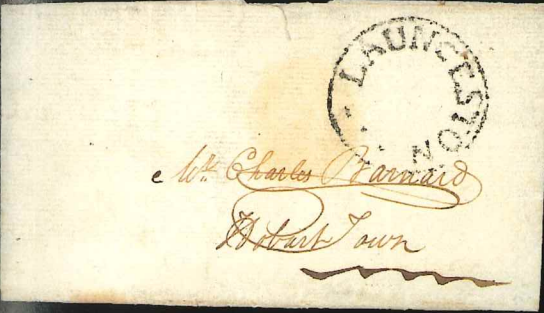 LAUNCESTON
Mr. Charles Barnard
Hobart Town